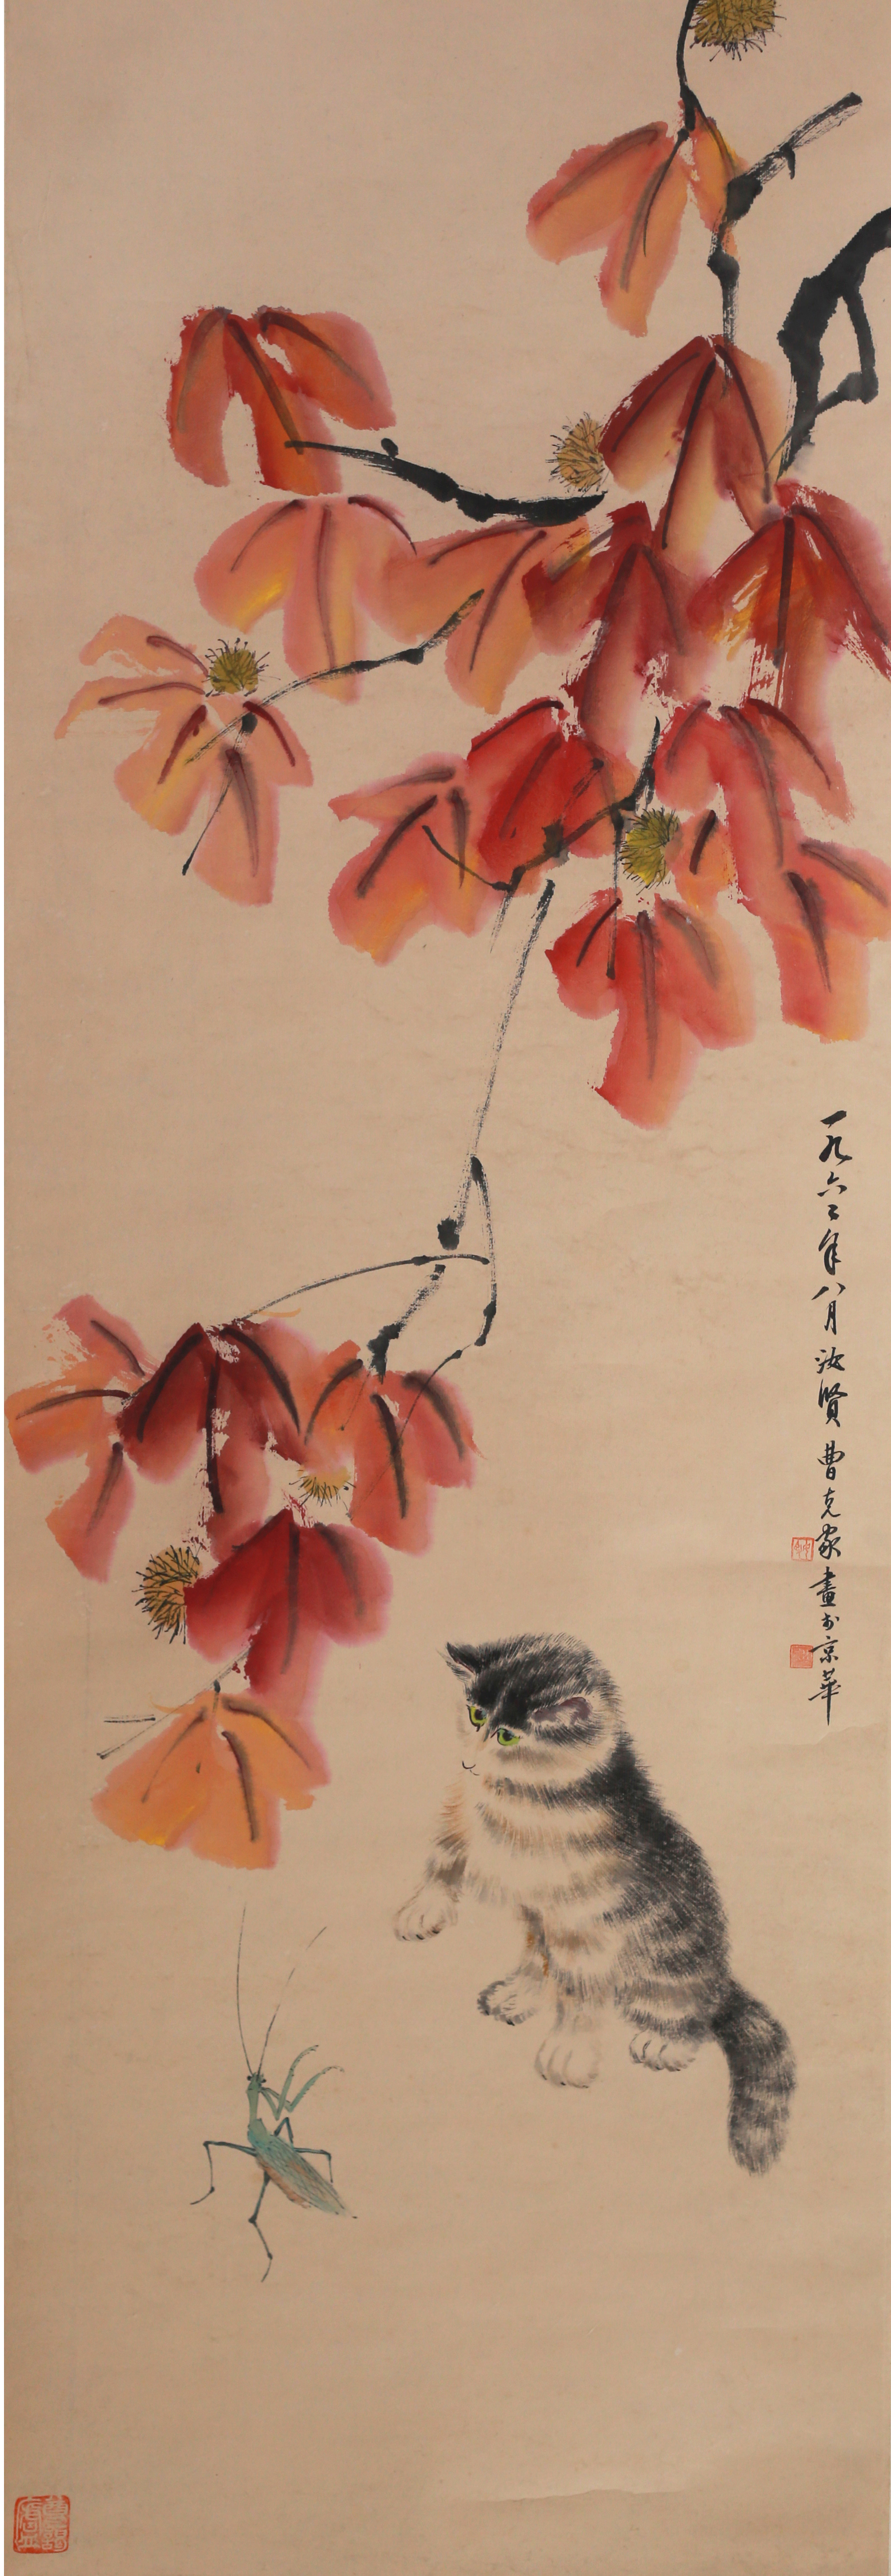 一九六二年八月汝贤曹克家畫於京華